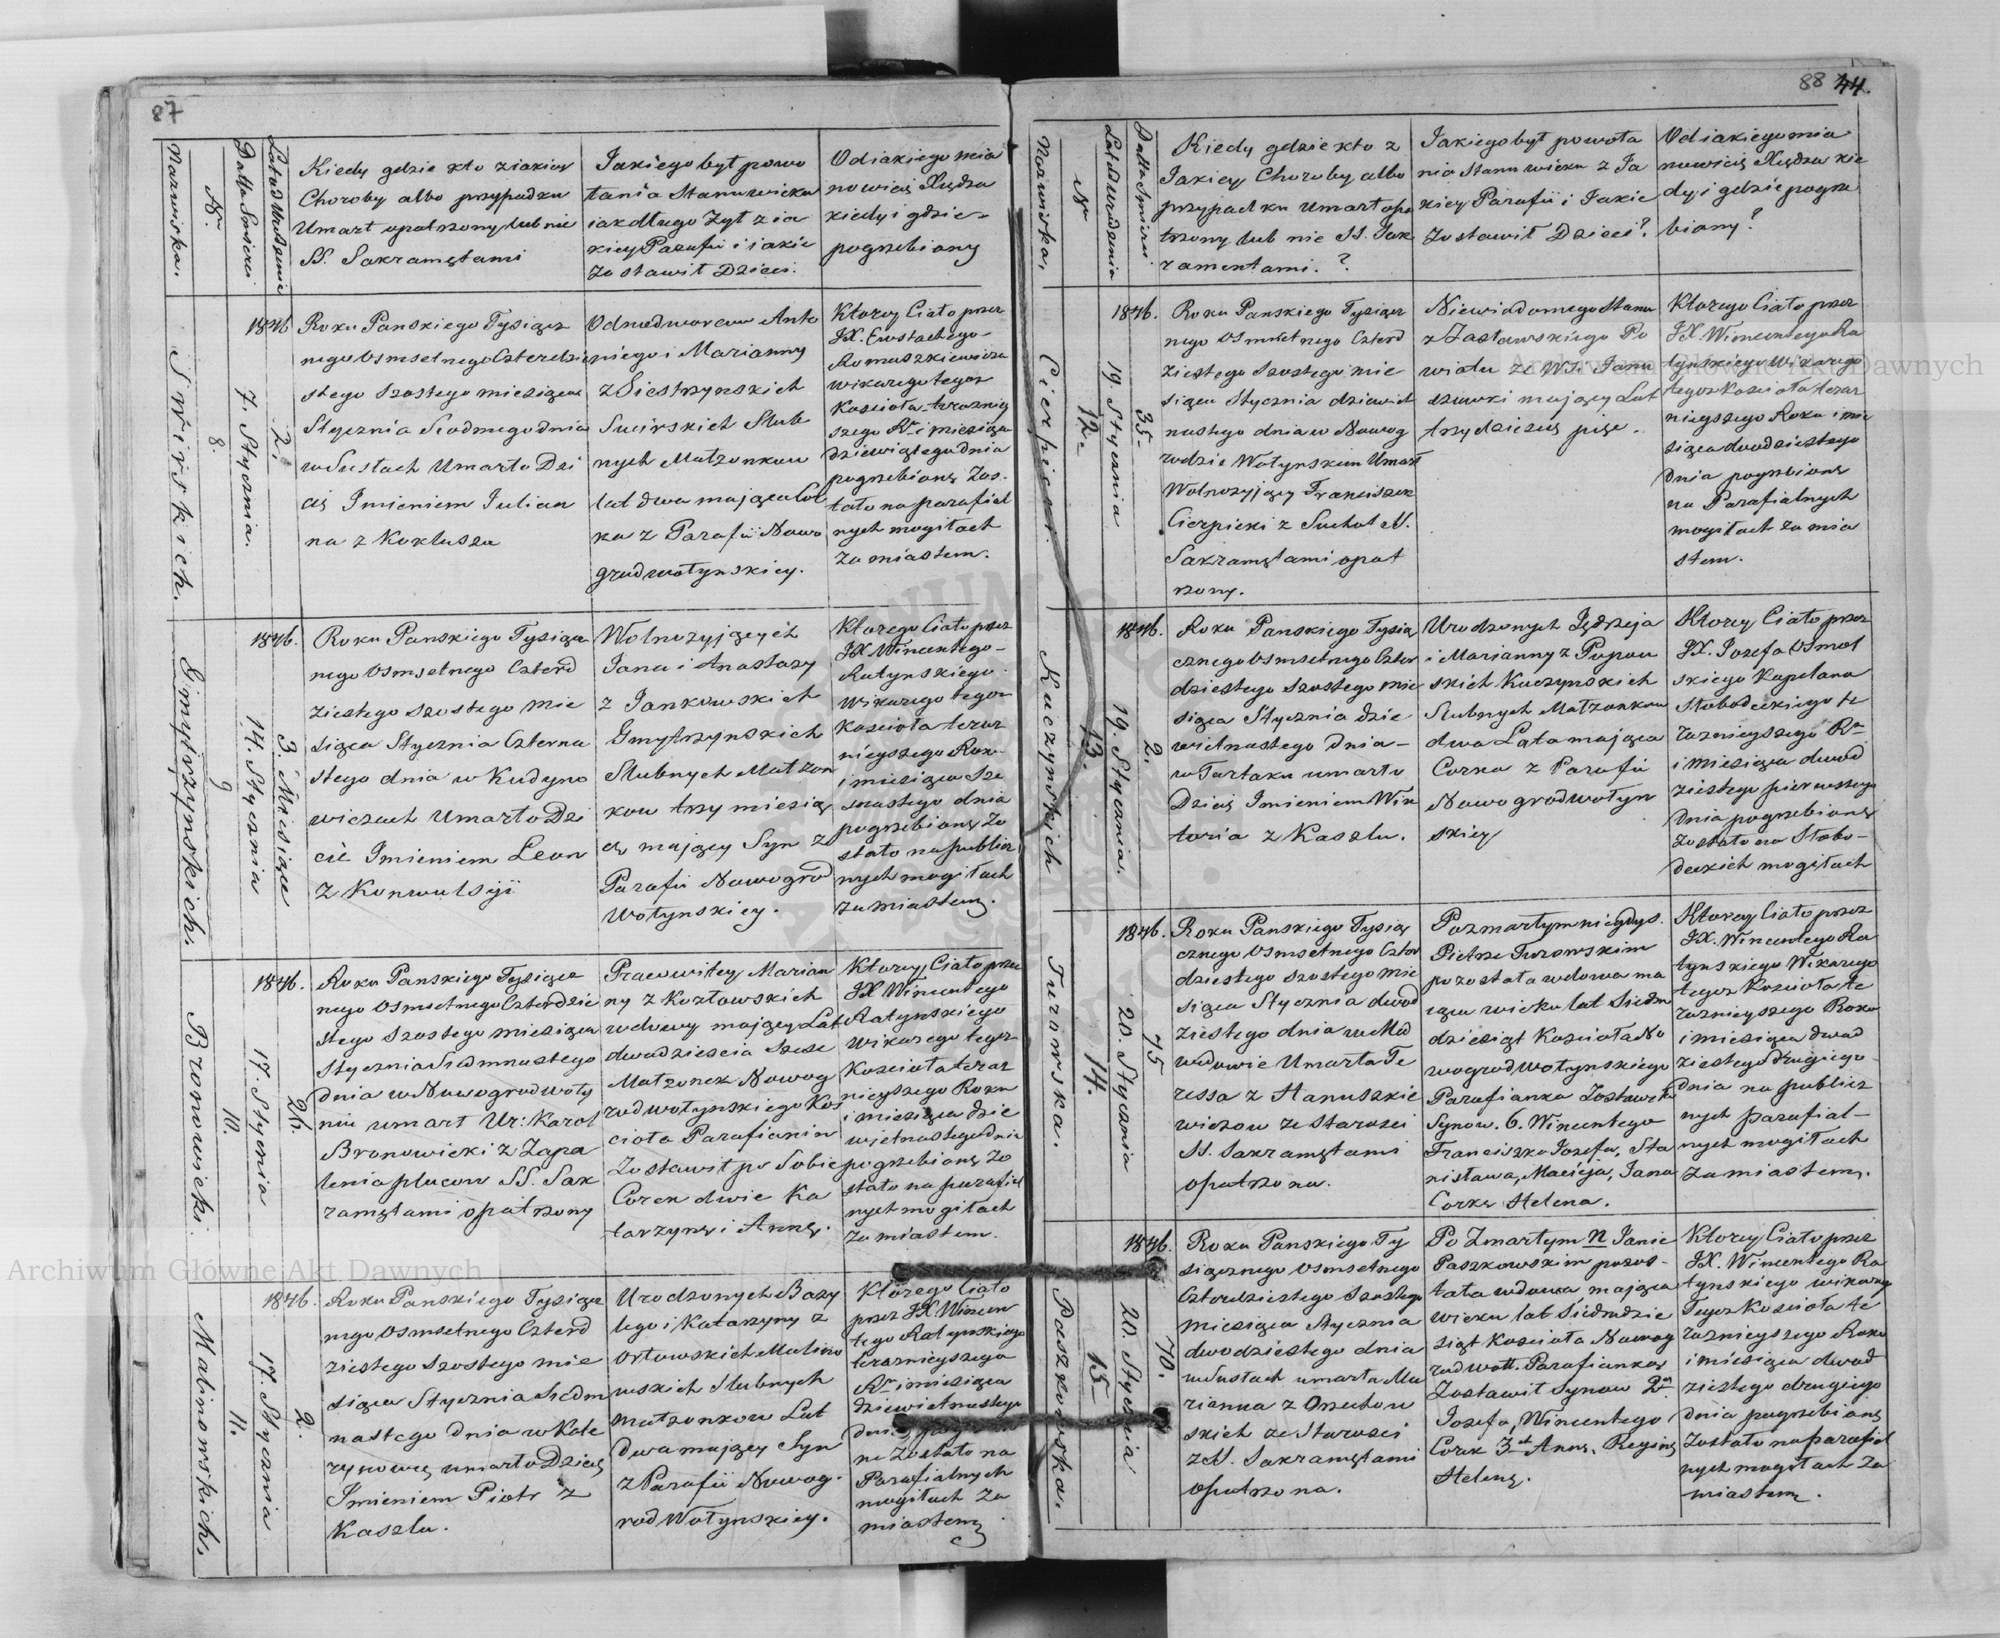 87
Nazwiska.
N.
Datta Smierci
Lata od Urodzenia
Kiedy gdzie kto z iakiey
Choroby albo przypadku
Umarł opatrzony lub nie
SS. Sakramętami
Jakiego był powo
łania Stanu wieku
iak długo Żył z ia
kiey Parafii i iakie
Zostawił Dzieci.
Od iakiego mia
nowicię Xiędza
kiedy i gdzie
pogrzebiony
Swirskich.
8.
7. Stycznia.
2.
1846
Roku Panskiego Tysiącz
nego Osmsetnego Czterdzie
stego Szostego miesiąca
Stycznia Siodmego dnia
w Sustach Umarło Dzi
cię Imieniem Julian
na z Kokluszu
Odnodworcow Anto
niego i Marianny
z Siestrzynskich
Swirskich Slub
nych Małżonkow
lat dwa maiąca Cor
ka z Parafii Nowo
gradwołynskiey.
Ktorey Ciało przez
JX. Ewstachego
Romaszkiewicza
wikarego tegoż
Kościoła teraznie
szego Rn i miesiąca
dziewiątego dnia
pogrzebionę Zos
tało na parafial
nych mogiłach
Za miastem.
Gmytrzynskich.
9
14. Stycznia
3. Miesiące
1846.
Roku Panskiego Tysiącz
nego Osmsetnego Czterd
ziestego szostego mie
siąca Stycznia Czterna
stego dnia w Kudyno
wiczach Umarło Dzi
cie Imieniem Leon
z Konwulsyi
Wolnożyjących
Jana i Anastazy
z Jankowskich
Gmytrzynskich
Slubnych Małżon
kow trzy miesią
cę maiący Syn z
Parafii Nowogrod
Wołynskiey.
Ktorego Ciało przez
JX Wincentego
Ratynskiego
Wikarego tegoż
Kościoła teraz
nieyszego Roku
i miesiąca Sze
snastego dnia
pogrzebionę Zo
stało na publicz
nych mogiłach
Za miastem.
Bronowicki.
10.
17 Stycnia
26.
1846.
Roku Panskiego Tysiącz
nego Osmsetnego Czterdzie
stego Szostego miesiąca
Stycznia Siedmnastego
dnia w Nowogrodwoły
niu umarł Ur: Karol
Bronowicki z Zapa
lenia płucow SS. Sak
ramętami opatrzony
Pracowitey Marian
ny z Kozłowskich
wdowy maiący Lat
dwadziescia Szesc
Małzonek Nowog
rodwołynskiego Kos
cioła Parafianin
Zostawił po Sobie
Corek dwie Ka
tarzynę i Annę.
Ktorey Ciało przez
JX Wincentego
Ratynskiego
Wikarego tegoż
Kościoła teraz
nieyszego Roku
i miesiąca dzie
wietnastego dnia
pogrzebionę Zo
stało na parafial
nych mogiłach
Za miastem.
Malinowskich.
11.
17. Stycznia
2.
1846.
Roku Panskiego Tysiącz
nego Osmsetnego Czterd
ziestego Szostego mie
siąca Stycznia Siedm
nastego dnia w Kate
rynowcę umarło Dziecię
Imieniem Piotr z
Kaszlu.
Urodzonych Bazy
lego i Katarzyny z
Orłowskich Malino
wskich Slubnych
małzonkow Lat
dwa maiący Syn
z Parafii Nowog
rod Wołynskiey.
Ktorego Ciało
przez JX. Wincen
tego Ratynskiego
teraznieyszego
Rn i miesiąca
dziewietnastego
na Zostało na
Parafialnych
mogiłach Za
miastem
88 44.
Nazwiska.
N
Lat od Urodzenia
Datta Smierci
Kiedy gdzie kto z
Jakiey Choroby albo
przypadku umarł opa
trzony lub nie SS. Sak
ramentami. ?
Jakiego był powoła
nia Stanu wieku z Ja
kiey Parafii i Jakie
Zostawił Dzieci ?
Od iakiego mia
nowicię Xiędza kie
dy i gdzie pogrze
biony ?
Cierpicki.
12.
19 Stycznia
35
1846.
Roku Panskiego Tysiącz
nego Osmsetnego Czterd
ziestego Szostego mie
siąca Stycznia dziewiet
nastego dnia w Nowog
rodzie Wołynskim Umarł
Wolnożyjący Franciszek
Cierpicki z Suchot SS.
Sakramętami opat
rzony.
Niewiadomego Stanu
z Zasławskiego Po
wiatu ze Wsi Janu
szowki maiący Lat
trzydziesci pięc.
Ktorego Ciało przez
JX. Wincentego Ra
tynskiego Wikarego
tegoż Kościoła teraz
nieyszego Roku i mie
siąca dwodziestego
dnia pogrzbionę
na Parafialnych
mogiłach za mia
stem.
Kuczynskich
13.
19. Stycznia.
2.
1846.
Roku Panskiego Tysią
cznego Osmsetnego Czter
dziestego Szostego mie
siąca Stycznia dzie
wietnastego dnia
w Tartaku umarło
Dzicię Imieniem Wik
toria z Kaszlu.
Urodzonych Jędrzeja
i Marianny z Pupow
skich Kuczynskich
Slubnych Małzonkow
dwa Lata maiąca
Corka z Parafii
Nowogrodwołyn
skiey
Ktorey Ciało przez
JX. Jozefa Osmol
skiego Kapelana
Słobodeckiego te
raznieyszego Rn
i miesiąca dwod
ziestego pierwszego
dnia pogrzebionę
Zostało na Słobo
deckich mogiłach
Turowska.
14.
20. Stycznia
75
1846.
Roku Panskiego Tysią
cznego Osmsetnego Czter
dziestego szostego mie
siąca Stycznia dwod
ziestego dnia w Mid
wodowie Umarła Te
ressa z Hanuszkie
wiczow ze Starosci
SS. Sakramętami
opatrzona.
Po zmarłym niegdys.
Pietrze Turowskim
pozostała wdowa ma
iąca wieku lat Siedm
dziesiąt Kościoła No
wogrodwołynskiego
Parafianka Zostawiła
Synow. 6. Wincentego
Franciszka Jozefa, Sta
nisława, Macieja, Jana
Corkę Helena.
Ktorey Ciało przez
JX. Wincentego Ra
tynskiego Wikarego
tegoż Kościoła te
raznieyszego Roku
i miesiąca dwad
ziestego drugiego
dnia na publicz
nych parafial
nych mogiłach
Za miastem.
Paszkowska.
15
20 Stycnia
70.
1846.
Roku Panskiego Ty
siącznego Osmsetnego
Czterdziestego Szostego
Miesiąca Stycznia
dwodziestego dnia
w Sustach umarła Ma
rianna z Orzechow
skich ze Starosci
z SS. Sakramętami
opatrzona.
Po Zmarłym N Janie
Paszkowskim pozos
tała wdowa maiąca
wieku lat Siedmdzie
siąt Kościoła Nowog
rodwoł. Parafianka
Zostawił Synow 2ch
Jozefa, Wincentego
Corek 3ch Annę, Reginę
Helenę.
Ktorey Ciało przez
JX. Wincentego Ra
tynskiego wikarego
Tegoż Kościoła te
raznieyszego Roku
i miesiąca dwod
ziestego drugiego
dnia pogrzebionę
Zostało na parafial
nych mogiłach Za
miastem.
Archiwum Główne Akt Dawnych
Archiwum Główne Akt Dawnych